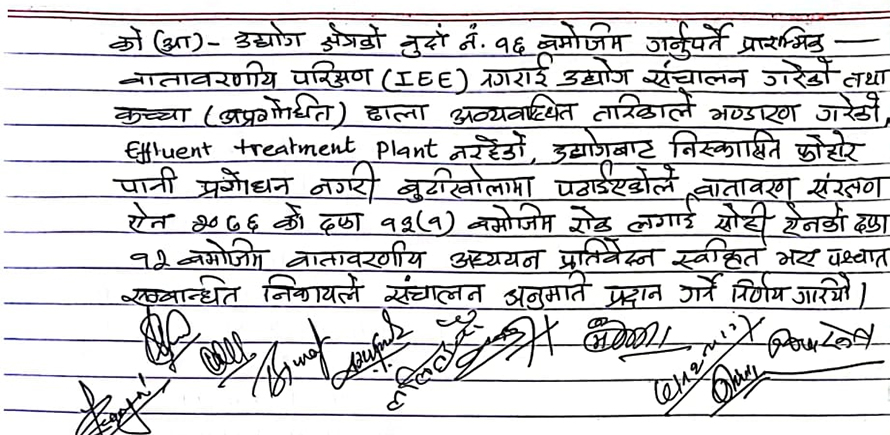 को (आ)- उद्योग क्षेत्रको बुदाँ नं. १६ बमोजिम गर्नुपर्ने प्रारम्भिक —
वातावरणीय परिक्षण (IEE) नगराई उद्योग संचालन गरेको तथा
कच्चा (अप्रशोधित) छाला अव्यवस्थित तरिकाले भण्डारण गरेको,
Effluent treatment Plant नरहेको, उद्योगबाट निस्कासित फोहोर
पानी प्रशोधन नगरी बुटीखोलामा पठाईएकोले वातावरण संरक्षण
ऐन २०७६ को दफा १३(१) बमोजिम रोक लगाई सोही ऐनको दफा
१२ बमोजिम वातावरणीय अध्ययन प्रतिवेदन स्वीकृत भए पश्चात
सम्बन्धित निकायले संचालन अनुमति प्रदान गर्ने निर्णय गरियो।